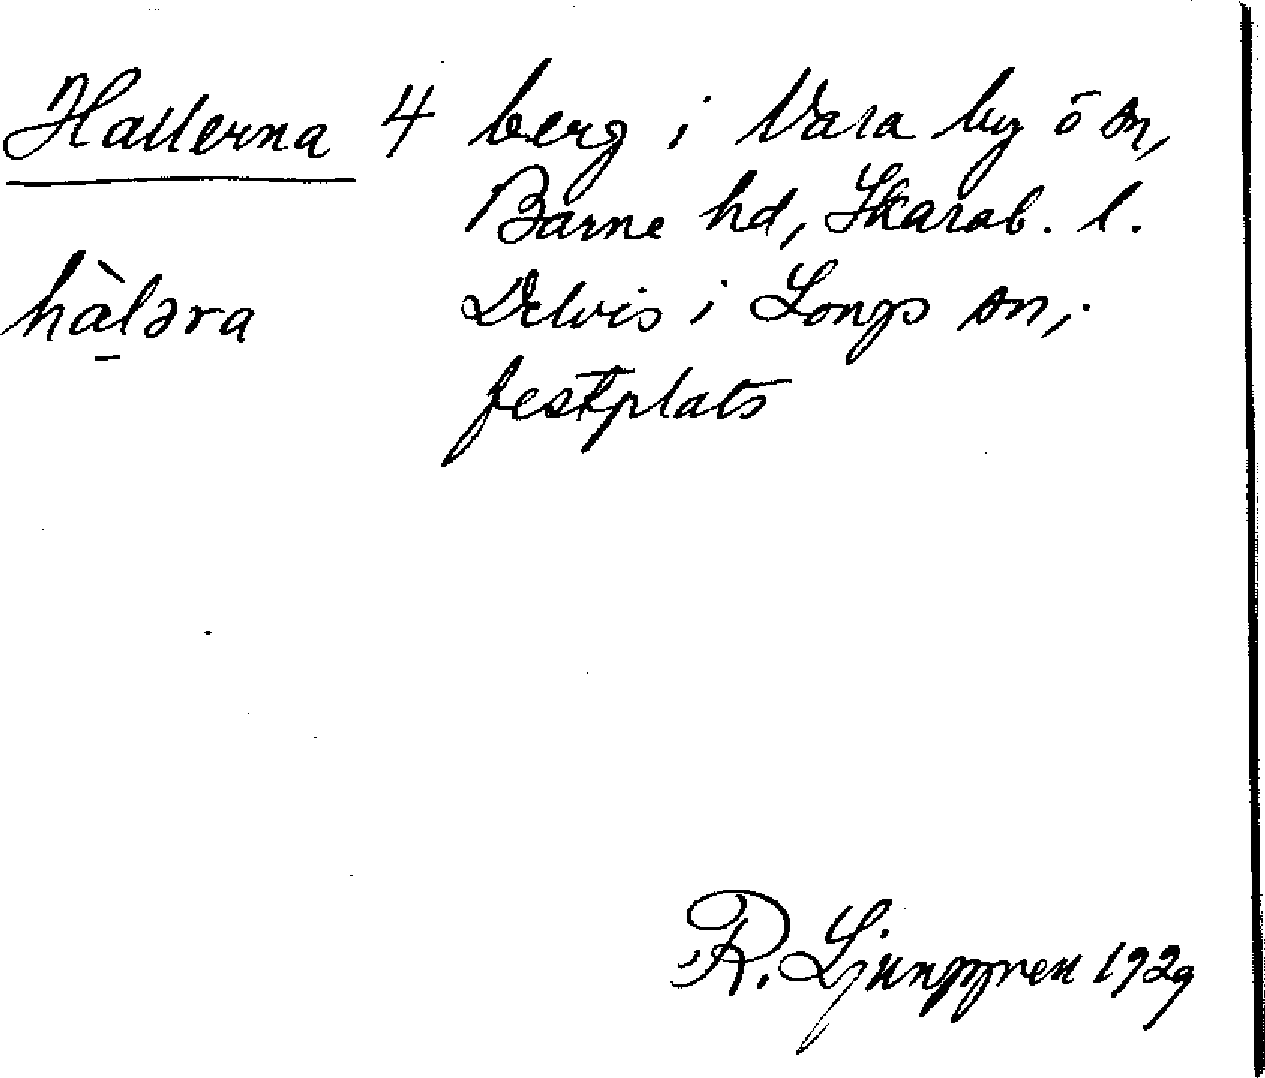 Hallerna 4 berg i Vara by ö sn,
Barne hd, Skarab. l.
hàləra Delvis i Longs sn,.
festplats
R. Ljunggren 1929